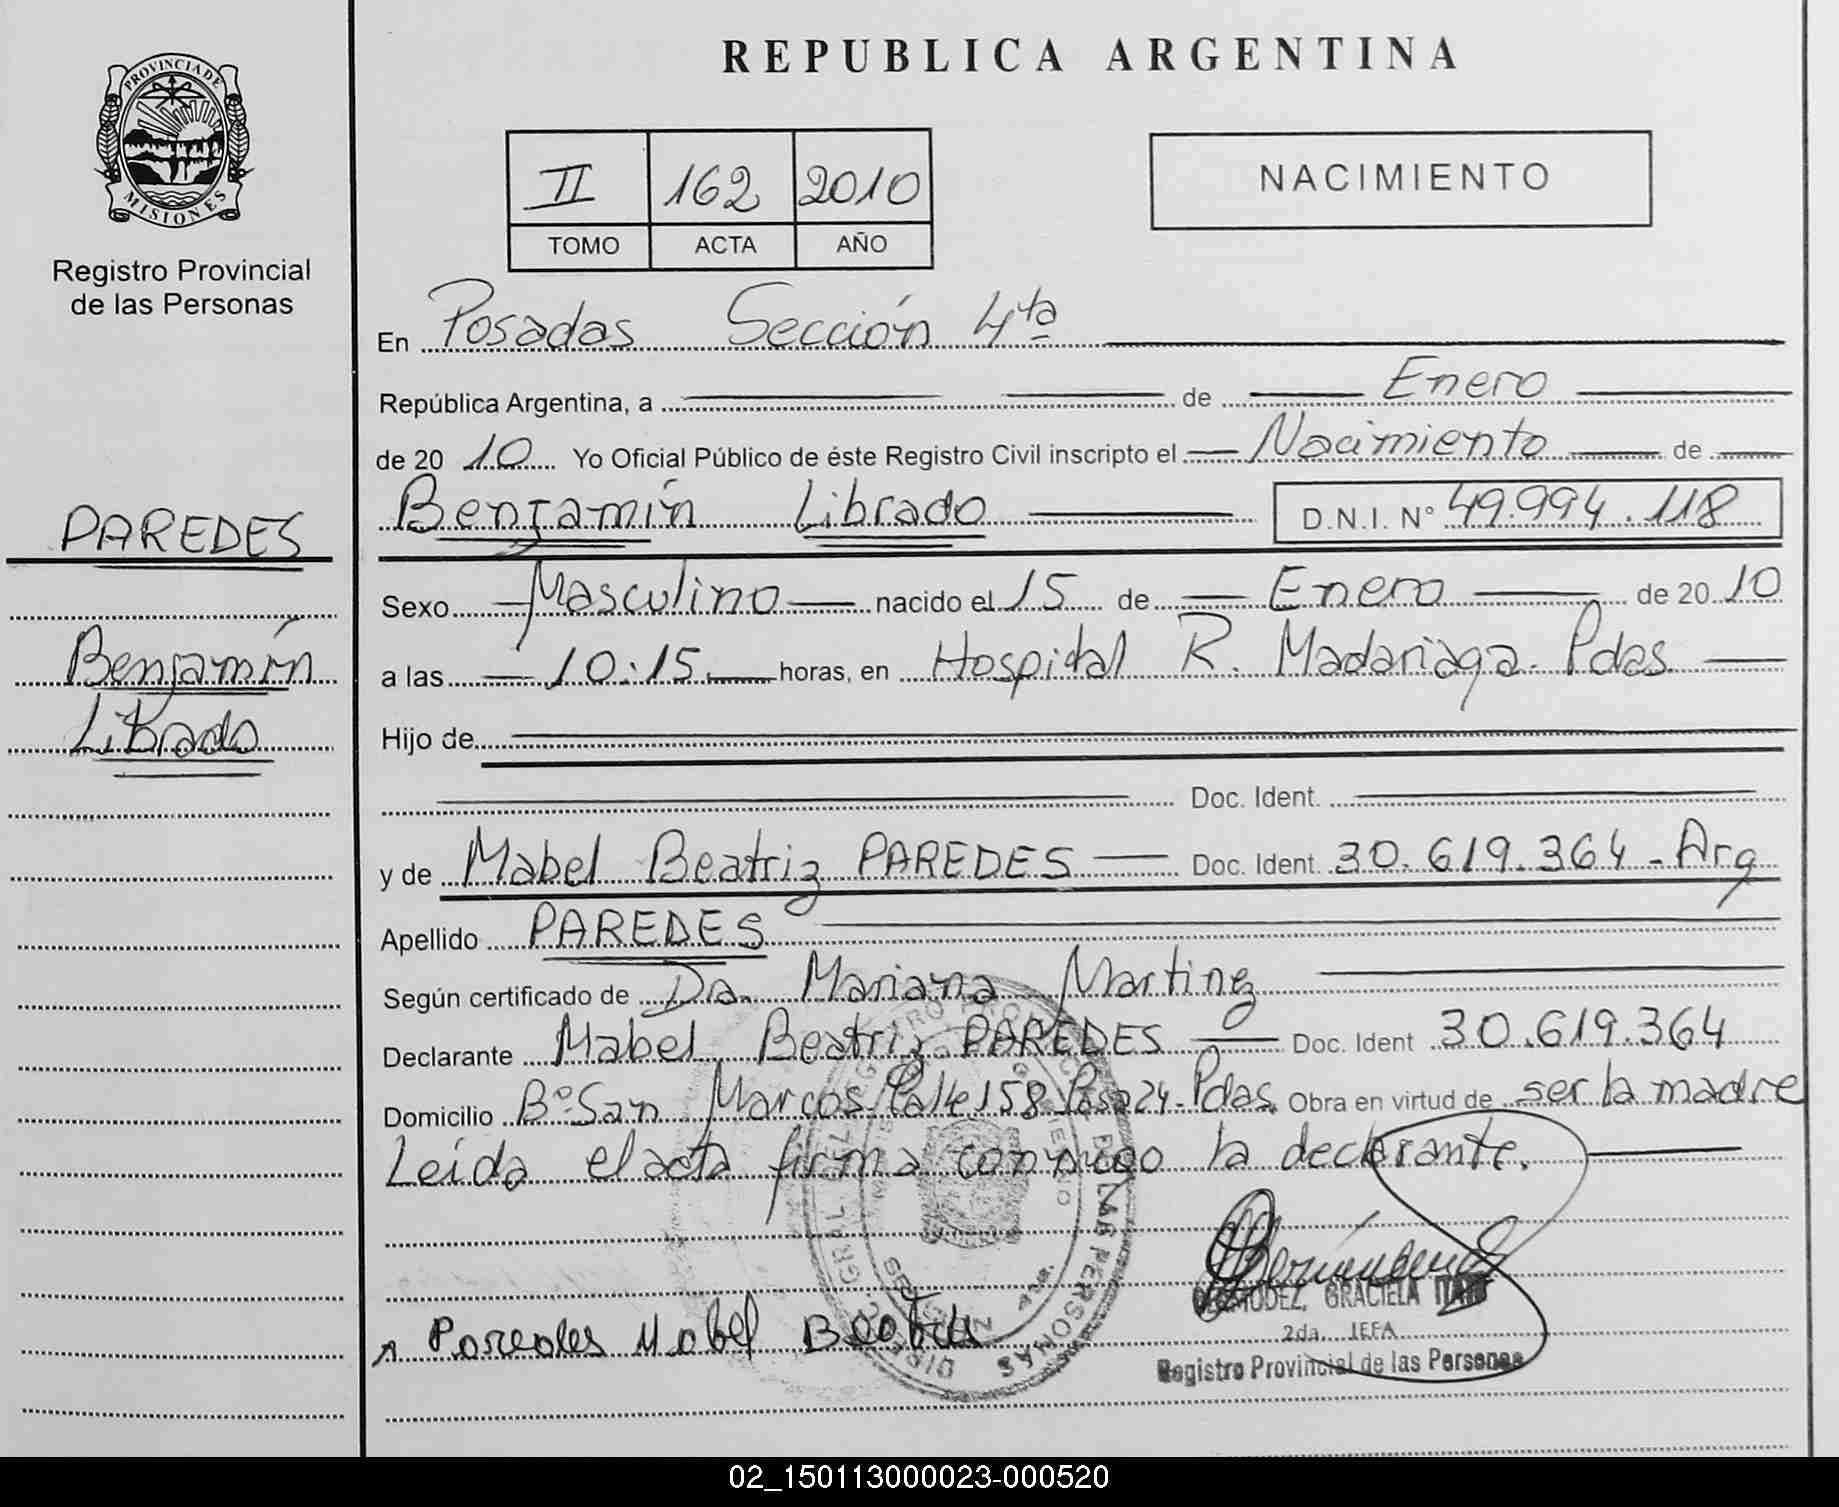 REPUBLICA ARGENTINA
PROVINCIA DE
MISIONES
Registro Provincial
de las Personas
II 162 2010
TOMO ACTA AÑO
NACIMIENTO
En Posadas Sección 4ta
República Argentina, a de Enero
de 20 10 Yo Oficial Público de éste Registro Civil inscripto el Nacimiento de
PAREDES
Benjamín Librado D.N.I. N° 49.994.118
Sexo Masculino nacido el 15 de Enero de 20 10
Benjamín
a las 10:15 horas, en Hospital R. Madariaga. Pdas
Librado
Hijo de
Doc. Ident.
y de Mabel Beatriz PAREDES Doc. Ident. 30.619.364 - Arg
Apellido PAREDES
Según certificado de Dra. Mariana Martinez
Declarante Mabel Beatriz PAREDES Doc. Ident 30.619.364
Domicilio B° San Marcos Calle 158 Casa 24 - Pdas. Obra en virtud de ser la madre
Leída el acta firma conmigo la declarante.
BERMUDEZ, GRACIELA
2da. JEFA
Registro Provincial de las Personas
Paredes Mabel Beatriz
02_150113000023-000520